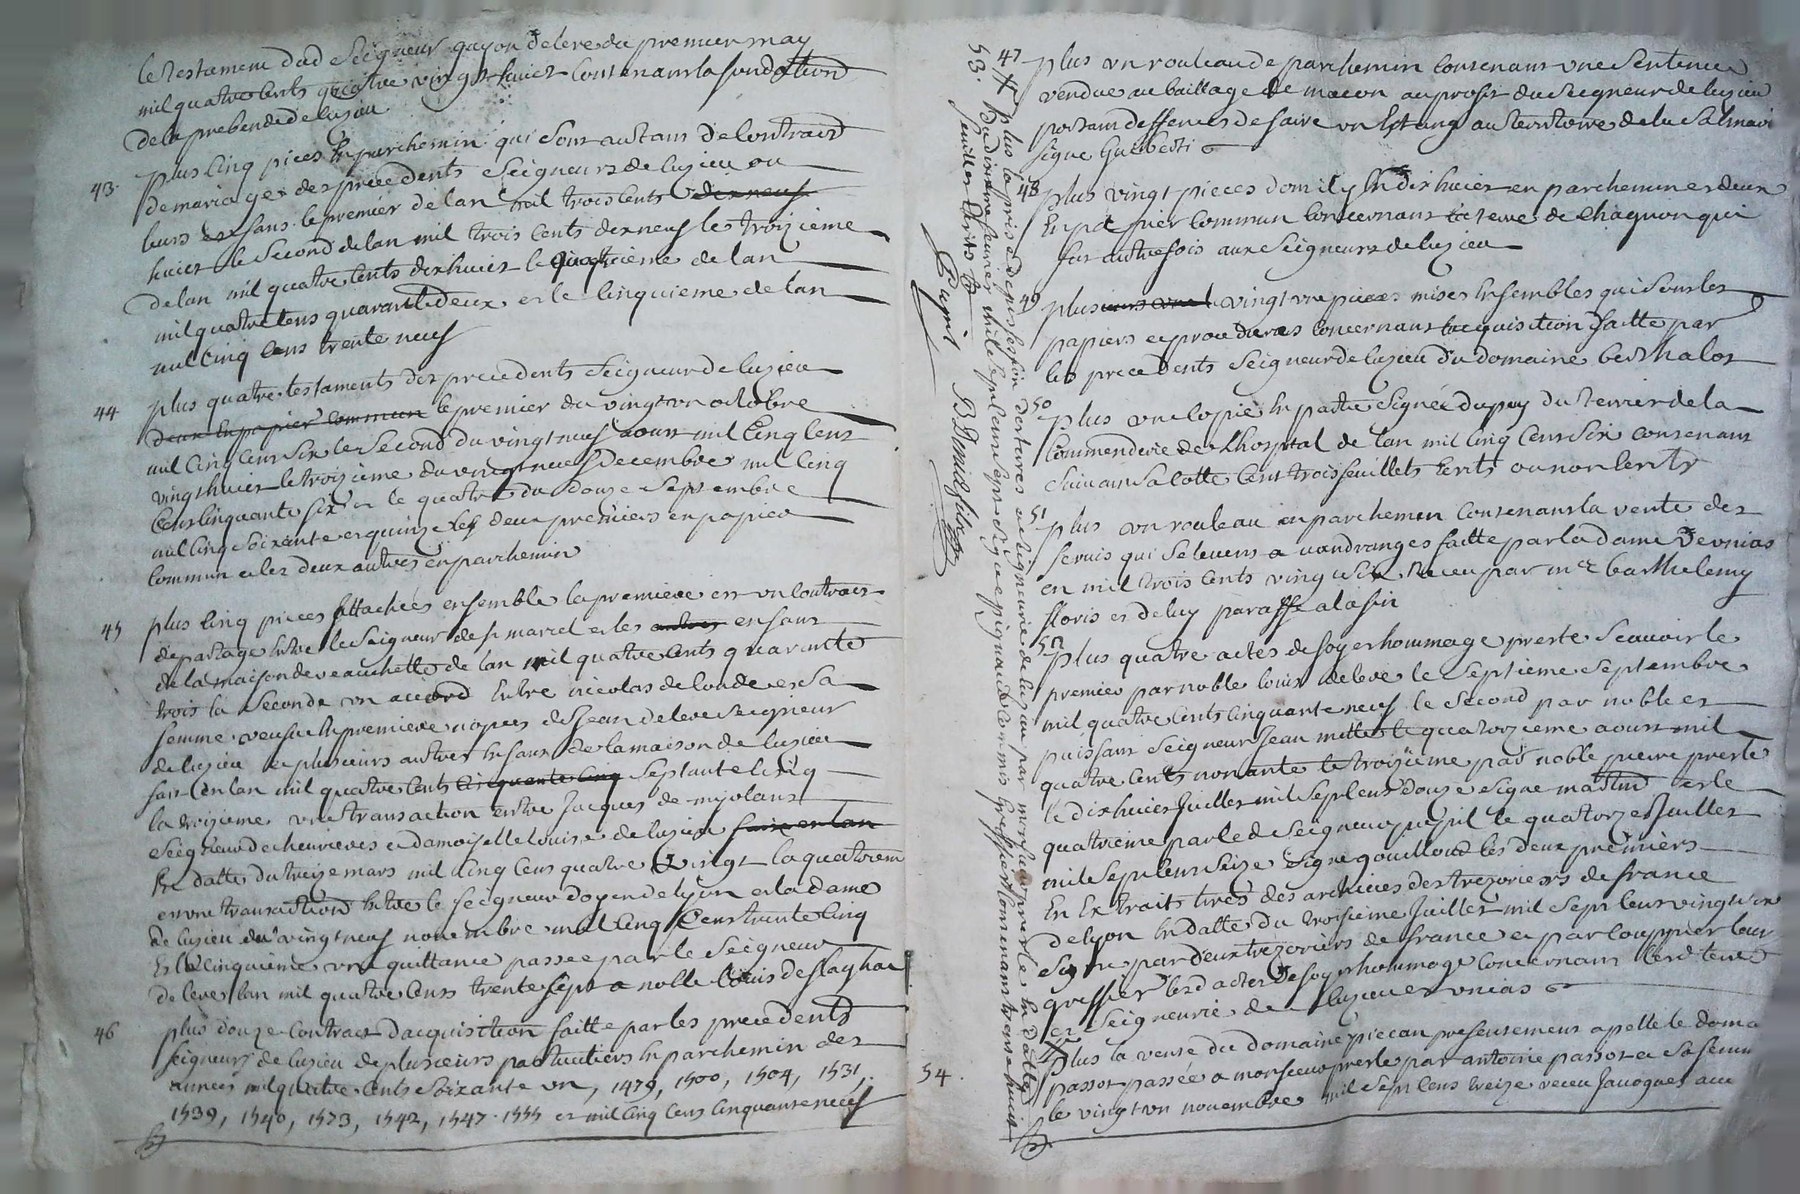 le testament dud Seigneur guyon deleve du premier may
mil quatre cents quatre vingt huict contenant la fondation
de la prebende de luzieu
43. Plus cinq pieces en parchemin qui sont autant de contract
de mariages des precedents Seigneurs de luzieu ou
leurs enfans le premier de lan mil trois cents dix neuf
huict le second de lan mil trois cents dix neuf le troizieme
de lan mil quatre cents dix huict le quatrieme de lan
mil quatre cens quarante deux et le cinquieme de lan
mil cinq cens trente neuf
44 plus quatre testaments des precedents Seigneur de luzieu
deux en papier commun le premier du vingt un octobre
mil cinq cent six le second du vingt neuf aoust mil cinq cent
vingt huict le troizieme du vingt neuf decembre mil cinq
cent cinquante six et le quatre du douze septembre
mil cinq soixante et quinze les deux premiers en papier
commun et les deux autres en parchemin
45 plus cinq pieces attachées ensemble la premiere est un contract
de partage entre le Seigneur de st marcel et les autres enfans
de la maison de veauchette de lan mil quatre cents quarante
trois la seconde un accord entre nicolas de londe et sa
femme veuve en premiere nopces de Jean deleve Seigneur
de luzieu et plusieurs autres enfans de la maison de luzieu
fait en lan mil quatre cents cinquante cinq septante cinq
la troizieme une transaction entre Jacques de mijolans
Seigneur de chenieres et damoiselle Louise de luzieu faite en lan
en datte du treize mars mil cinq cens quatre vingt la quatriem
est une transaction entre le seigneur doyen de lyon et la dame
de luzieu du vingt neuf novembre mil cinq cens trente cinq
Et la cinquieme une quittance passee par le Seigneur
de leve lan mil quatre cens trente sept a noble Louis de
46 plus douze contract dacquisition faitte par les precedents
seigneurs de luzieu de plusieurs particuliers en parchemin des
annees mil quatre cents soixante un, 1479, 1500, 1504, 1531,
1539, 1540, 1573, 1542, 1547. 1555 et mil cinq cens cinquante neuf
47 plus un rouleau de parchemin contenant une sentence
rendue au baillage de macon au profit du seigneur de luzieu
portant deffences de faire un Estang au territoire de la
signe Gauberti
48 plus vingt pieces dont il y en dix huict en parchemin et deux
En papier commun concernant la terre de Chagnon qui
fut autresfois aux Seigneurs de luzieu
49 plusieurs une vingt une pieces mises ensembles qui sont les
papiers et procedures concernant lacquisition faitte par
les precedents Seigneur de luzieu du domaine berthalot
50 Plus une copie en partie signée dupuy du terrier de la
Commenderie de Lhospital de lan mil cinq cent six contenant
suivant sa cotte cent trois feuillets Ecrits ou non Ecrits
51 plus un rouleau en parchemin contenant la vente des
servis qui se levent a vandranges faitte par la dame
en mil trois cents vingt six receu par me barthelemy
floris et de luy paraffé a la fin
52 Plus quatre actes de foy et hommage preste scavoir le
premier par noble louis deleve le septieme septembre
mil quatre cents cinquante neuf le second par noble et
puissant seigneur Jean mitte le quatorzieme aoust mil
quatre cents nonante le troizieme par noble pierre presle
le dix huict Juillet mil sept cent douze signe et le
quatrieme par led Seigneur le quatorze Juillet
mil sept cent seize signe les deux premiers
En Extraits tires des archives des trezoriers de france
de lyon en datte du troisieme Juillet mil sept cent vingt six
signe par deux trezoriers de france et par leur
greffier lesd actes de foy et hommage concernant lesd terre
et Seigneurie de luzieu et unias
53. plus la prise de possession des terres et seigneurie de luzieu par monsieur presle en datte
du dixieme fevrier mil sept cent Commis greffier contenant trente huict
feuillet Ecrits
Pupil B Denis fibre
54. Plus la vente du domaine piecan presentement apelle le doma
passot passée a monsieur presle par antoine passot et sa femme
le vingt un novembre mil sept cens treize receu Jauoques